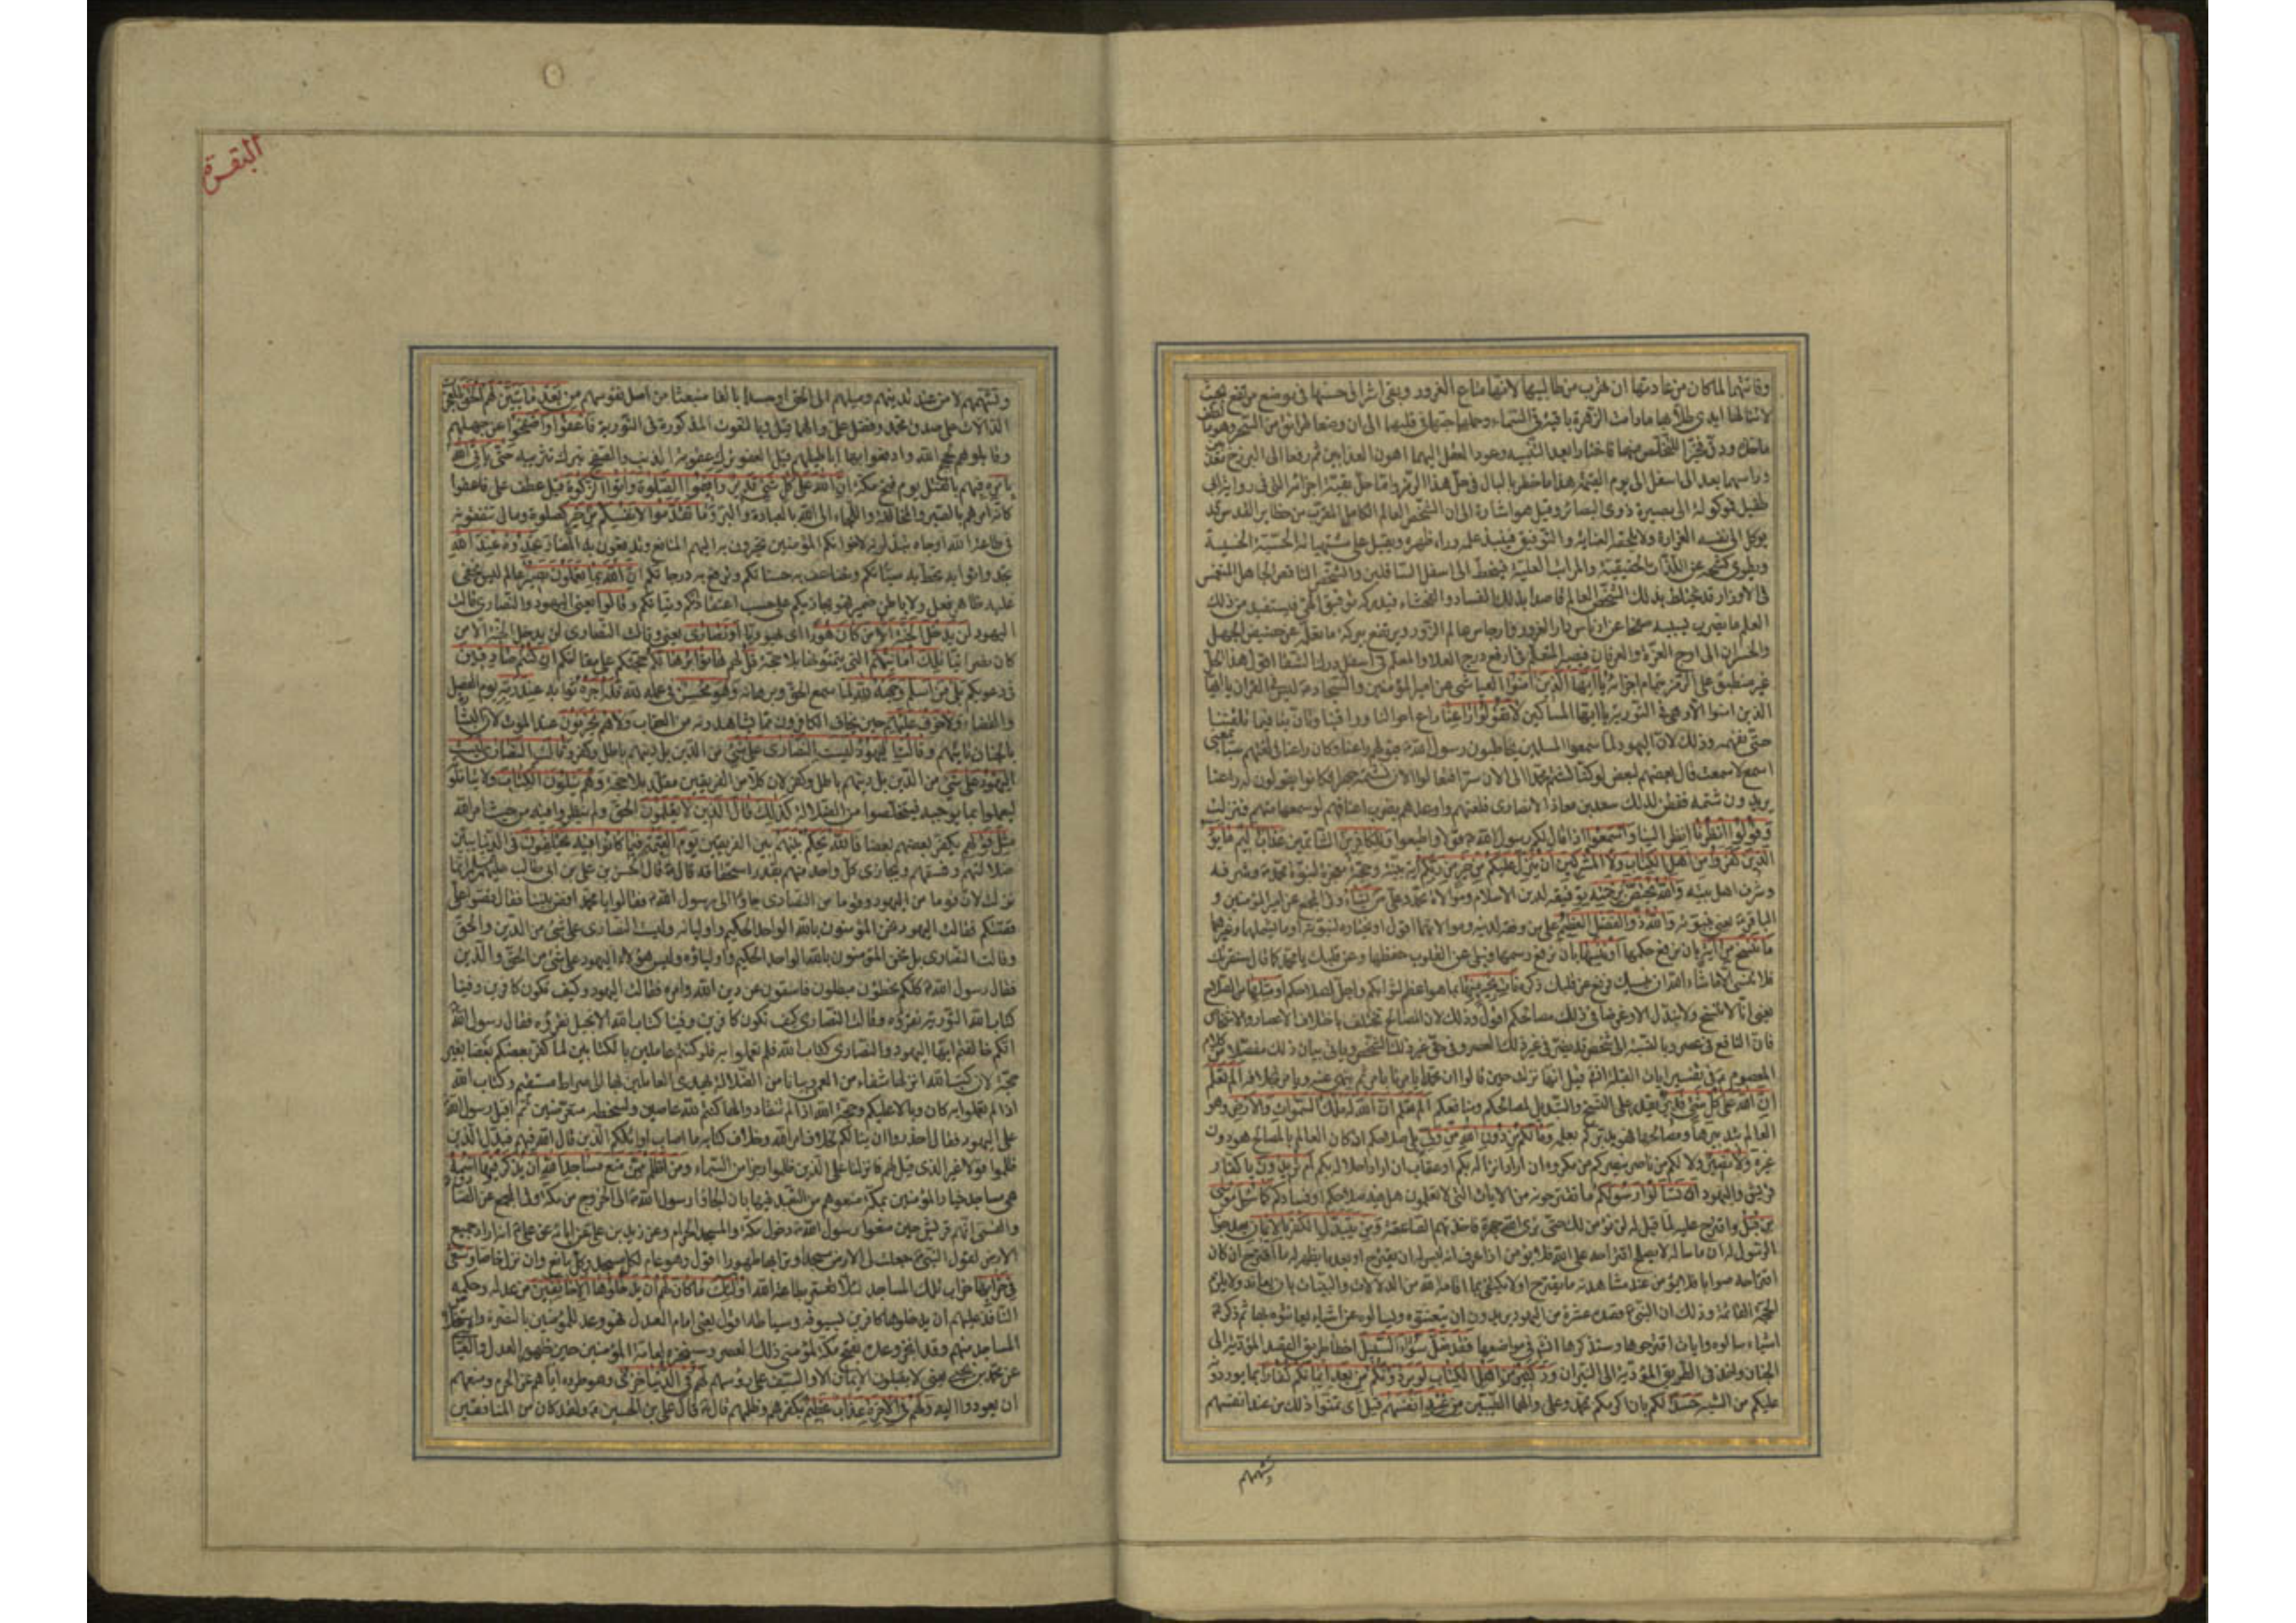 وفاتتهما لما كان من عادتها ان تهرب من طالبيها لانها متاع الغرور وبقي اشراق حسنها في موضع مرتفع بحيث
لا تنالها ايدي طلابها ما دامت الزهرة باقية في السماء وحملهما حبها في قلبهما الى ان وضعا طرائق من السحر وهو ما لطف
ماخذه ودق فخيرا للتخلص منها فاختارا بعد التنبه وعود العقل اليهما اهون العذابين ثم رفعا الى البرزخ معذبين
وراسهما بعد الى اسفل الى يوم القيمة هذا ما خطر بالبال في حل هذا الرمز واما حل بقية اجزائه التي في رواية ابي
طفيل فموكولة الى بصيرة ذوي البصائر وقيل هو اشارة الى ان الشخص العالم الكامل المقرب من حظاير القدس قد
يوكل الى نفسه الغرارة ولا يلحقه العناية والتوفيق فينبذ علمه وراء ظهره ويقبل على مشتهياته الحسية الخسيسة
ويطوي كشحه عن اللذات الحقيقية والمراتب العلية فينحط الى اسفل السافلين والشخص الناقص الجاهل المنغمس
في الاوزار قد يختلط بذلك الشخص العالم قاصدا بذلك الفساد والفحشاء فيدركه توفيق الهي فيستفيد من ذلك
العلم ما يضرب بسببه صفحا عن ادناس دار الغرور وارجاس عالم الزور ويرتفع ببركة ما تعلمه عن حضيض الجهل
والخسران الى اوج العزة والعرفان فيصير المتعلم في ارفع درج العلاء والمعلم في اسفل درك الشقاء اقول هذا الحل
غير منطبق على الرمز بتمام اجزائه يا ايها الذين امنوا العياشي عن امير المؤمنين والسجاد ع ليس في القران يا ايها
الذين امنوا الا وهي في التورية يا ايها المساكين لا تقولوا راعنا راع احوالنا وراقبنا وتأن بنا فيما تلقننا
حتى نفهمه وذلك لان اليهود لما سمعوا المسلمين يخاطبون رسول الله ص بقولهم راعنا وكان راعنا في لغتهم سبا بمعنى
اسمع لا سمعت قال بعضهم لبعض لو كنا نشتم محمدا الى الان سرا فتعالوا الان نشتمه جهرا فكانوا يقولون له راعنا
يريدون شتمه ففطن لذلك سعد بن معاذ الانصاري فلعنهم واوعدهم بضرب اعناقهم لو سمعها منهم فنزلت
وقولوا انظرنا انظر الينا واسمعوا اذا قال لكم رسول الله ص قولا واطيعوا وللكافرين الشاتمين عذاب اليم ما يود
الذين كفروا من اهل الكتاب ولا المشركين ان ينزل عليكم من خير من ربكم اية بينة وحجة معجزة لنبوة محمد ص وشرفه
وشرف اهل بيته والله يختص برحمته بتوفيقه لدين الاسلام وموالاة محمد وعلي من يشاء وفي المجمع عن امير المؤمنين و
الباقر ع يعني بنبوته والله ذو الفضل العظيم على من وفقه لدينه وموالاتهما اقول او يختاره لنبوته او ما يشملها وغيرهما
ما ننسخ من اية بان نرفع حكمها او ننسها بان نرفع رسمها ونبلي عن القلوب حفظها وعن قلبك يا محمد كما قال سنقرئك
فلا تنسى الا ما شاء الله ان ينسيك فرفع عن قلبك ذكره نأت بخير منها بما هو اعظم لثوابكم واجل لصلاحكم او مثلها من الصلاح
يعني انا لا ننسخ ولا نبدل الا وغرضنا في ذلك مصالحكم اقول وذلك لان المصالح تختلف باختلاف الاعصار والاشخاص
فان النافع في عصر وبالنسبة الى شخص قد يضر في غير ذلك العصر وفي حق غير ذلك الشخص وياتي بيان ذلك مفصلا من كلام
المعصوم ع في تفسير ايات القبلة انه قيل انها نزلت حين قالوا ان محمدا يامرنا بامر ثم ينهى عنه ويامر بخلافه الم تعلم
ان الله على كل شئ قدير يقدر على النسخ والتبديل لمصالحكم ومنافعكم الم تعلم ان الله له ملك السموات والارض وهو
العالم بتدبيرها ومصالحها فهو يدبركم بعلمه وما لكم من دون الله من ولي يلي صلاحكم اذ كان العالم بالمصالح هو دون
غيره ولا نصير ولا لكم من ناصر ينصركم من مكروه ان اراد انزاله بكم او عقاب ان اراد احلاله بكم ام تريدون يا كفار
قريش واليهود ان تسألوا رسولكم ما تقترحونه من الايات التي لا تعلمون هل فيه صلاحكم او فسادكم كما سئل موسى
من قبل واقترح عليه لما قيل له لن نؤمن لك حتى نرى الله جهرة فاخذتهم الصاعقة ومن يتبدل الكفر بالايمان بعد جواب
الرسول له ان ما ساله لا يصلح اقتراحه على الله فلا يؤمن اذا عرف انه ليس له ان يقترح او بعد ما يظهر له ما اقترح ان كان
اقتراحه صوابا فلا يؤمن عند مشاهدته ما يقترح او لا يكتفي بما اقامه الله من الدلالات والبينات بان يعاند ولا يلزم
الحجة القائمة وذلك ان النبي ص قصده عشرة من اليهود يريدون ان يتعنتوه ويسالوه عن اشياء يعانتوه بها ثم ذكر ع
اشياء سالوه وايات اقترحوها وسنذكرها انشه في مواضعها فقد ضل سواء السبيل اخطا طريق القصد المؤدية الى
الجنان واخذ في الطريق المؤدية الى النيران ود كثير من اهل الكتاب لو يردونكم من بعد ايمانكم كفارا بما يوردونه
عليكم من الشبه حسدا لكم بان اكرمكم بمحمد وعلي والهما الطيبين من عند انفسهم قيل اى تمنوا ذلك من عند انفسهم
وتشهيهم
البقرة
وتشهيهم لا من عند تدينهم وميلهم الى الحق او حسدا بالغا منبعثا من اصل نفوسهم من بعد ما تبين لهم الحق بالمعجزات
الدالات على صدق محمد وفضل علي والهما قيل وبالنعوت المذكورة في التورية فاعفوا واصفحوا عن جهلهم
وقابلوهم بحجج الله وادفعوا بها اباطيلهم قيل العفو ترك عقوبة الذنب والصفح ترك تثريبه حتى ياتي الله
بامره فيهم بالقتل يوم فتح مكة ان الله على كل شئ قدير واقيموا الصلوة واتوا الزكوة قيل عطف على فاعفوا
كانه امرهم بالصبر والمخالفة واللجاء الى الله بالعبادة والبر وما تقدموا لانفسكم من خير كصلوة ومال تنفقونه
في طاعة الله او جاه تبذلونه لاخوانكم المؤمنين تجرون به اليهم المنافع وتدفعون به المضار تجدوه عند الله
تجدوا ثوابه تحط به سيئاتكم وتضاعف به حسناتكم وترفع به درجاتكم ان الله بما تعملون بصير عالم ليس يخفى
عليه ظاهر فعل ولا باطن ضمير فهو يجازيكم على حسب اعتقاداتكم ونياتكم وقالوا يعني اليهود والنصارى قالت
اليهود لن يدخل الجنة الا من كان هودا اى يهوديا او نصارى يعني وقالت النصارى لن يدخل الجنة الا من
كان نصرانيا تلك امانيهم التي يتمنونها بلا حجة قل لهم هاتوا برهانكم حجتكم على مقالتكم ان كنتم صادقين
في دعويكم بلى من اسلم وجهه لله لما سمع الحق وبرهانه وهو محسن في عمله لله فله اجره ثوابه عند ربه يوم الفصل
والقضاء ولا خوف عليهم حين يخاف الكافرون مما يشاهدونه من العقاب ولا هم يحزنون عند الموت لان البشارة
بالجنان تاتيهم وقالت اليهود ليست النصارى على شئ من الدين بل دينهم باطل وكفر وقالت النصارى ليست
اليهود على شئ من الدين بل دينهم باطل وكفر لان كلا من الفريقين مقلد بلا حجة وهم يتلون الكتاب ولا يتاملونه
ليعملوا بما يوجبه فيتخلصوا من الضلالة كذلك قال الذين لا يعلمون الحق ولم ينظروا فيه من حيث امر الله
مثل قولهم يكفر بعضهم بعضا فالله يحكم بينهم بين الفريقين يوم القيمة فيما كانوا فيه يختلفون في الدنيا يبين
ضلالتهم وفسقهم ويجازى كل واحد منهم بقدر استحقاقه قال ع قال الحسن بن علي بن ابي طالب عليهم السلام انما
نزلت لان قوما من اليهود وقوما من النصارى جاؤا الى رسول الله ص فقالوا يا محمد اقض بيننا فقال قصوا على
قصتكم فقالت اليهود نحن المؤمنون بالله الواحد الحكيم واوليائه وليست النصارى على شئ من الدين والحق
وقالت النصارى بل نحن المؤمنون بالله الواحد الحكيم واولياؤه وليس هؤلاء اليهود على شئ من الحق والدين
فقال رسول الله ص كلكم مخطئون مبطلون فاسقون عن دين الله وامره فقالت اليهود وكيف نكون كافرين وفينا
كتاب الله التورية نقرؤه وقالت النصارى كيف نكون كافرين وفينا كتاب الله الانجيل نقرؤه فقال رسول الله ص
انكم خالفتم ايها اليهود والنصارى كتاب الله فلم تعملوا به فلو كنتم عاملين بالكتابين لما كفر بعضكم بعضا بغير
حجة لان كتب الله انزلها شفاء من العمى وبيانا من الضلالة يهدى العاملين بها الى صراط مستقيم وكتاب الله
اذا لم تعملوا به كان وبالا عليكم وحجة الله اذا لم تنقادوا لها كنتم لله عاصين ولسخطه متعرضين ثم اقبل رسول الله ص
على اليهود فقال احذروا ان ينالكم بخلاف امر الله وخلاف كتابه ما اصاب اوائلكم الذين قال الله فيهم فبدل الذين
ظلموا قولا غير الذي قيل لهم فانزلنا على الذين ظلموا رجزا من السماء ومن اظلم ممن منع مساجد الله ان يذكر فيها اسمه
هي مساجد خيار المؤمنين بمكة منعوهم من التعبد فيها بان الجاؤا رسول الله ص الى الخروج من مكة وفي المجمع عن الصادق
والقمي انهم قريش حين منعوا رسول الله ص دخول مكة والمسجد الحرام وعن زيد بن علي عن ابائه عن علي ع انه اراد جميع
الارض لقول النبي ص جعلت لي الارض مسجدا وترابها طهورا اقول وهو عام لكل مسجد وكل مانع وان نزل خاصا وسعى
في خرابها خراب تلك المساجد لئلا تعمر بطاعة الله اولئك ما كان لهم ان يدخلوها الا خائفين من عدله وحكمه
النافذ عليهم ان يدخلوها كافرين بسيوفه وسياطه اقول يعني امام العدل فهو وعد للمؤمنين بالنصرة واستخلاص
المساجد منهم وقد انجز وعده بفتح مكة لمؤمني ذلك العصر وسينجزه لعامة المؤمنين حين ظهور العدل والعياشي
عن محمد بن يحيى يعني لا يقبلون الايمان الا والسيف على رؤسهم لهم في الدنيا خزى وهو طرده اياهم عن الحرم ومنعهم
ان يعودوا اليه ولهم في الاخرة عذاب عظيم بكفرهم وظلمهم قال ع قال علي بن الحسين ع ولقد كان من المنافقين